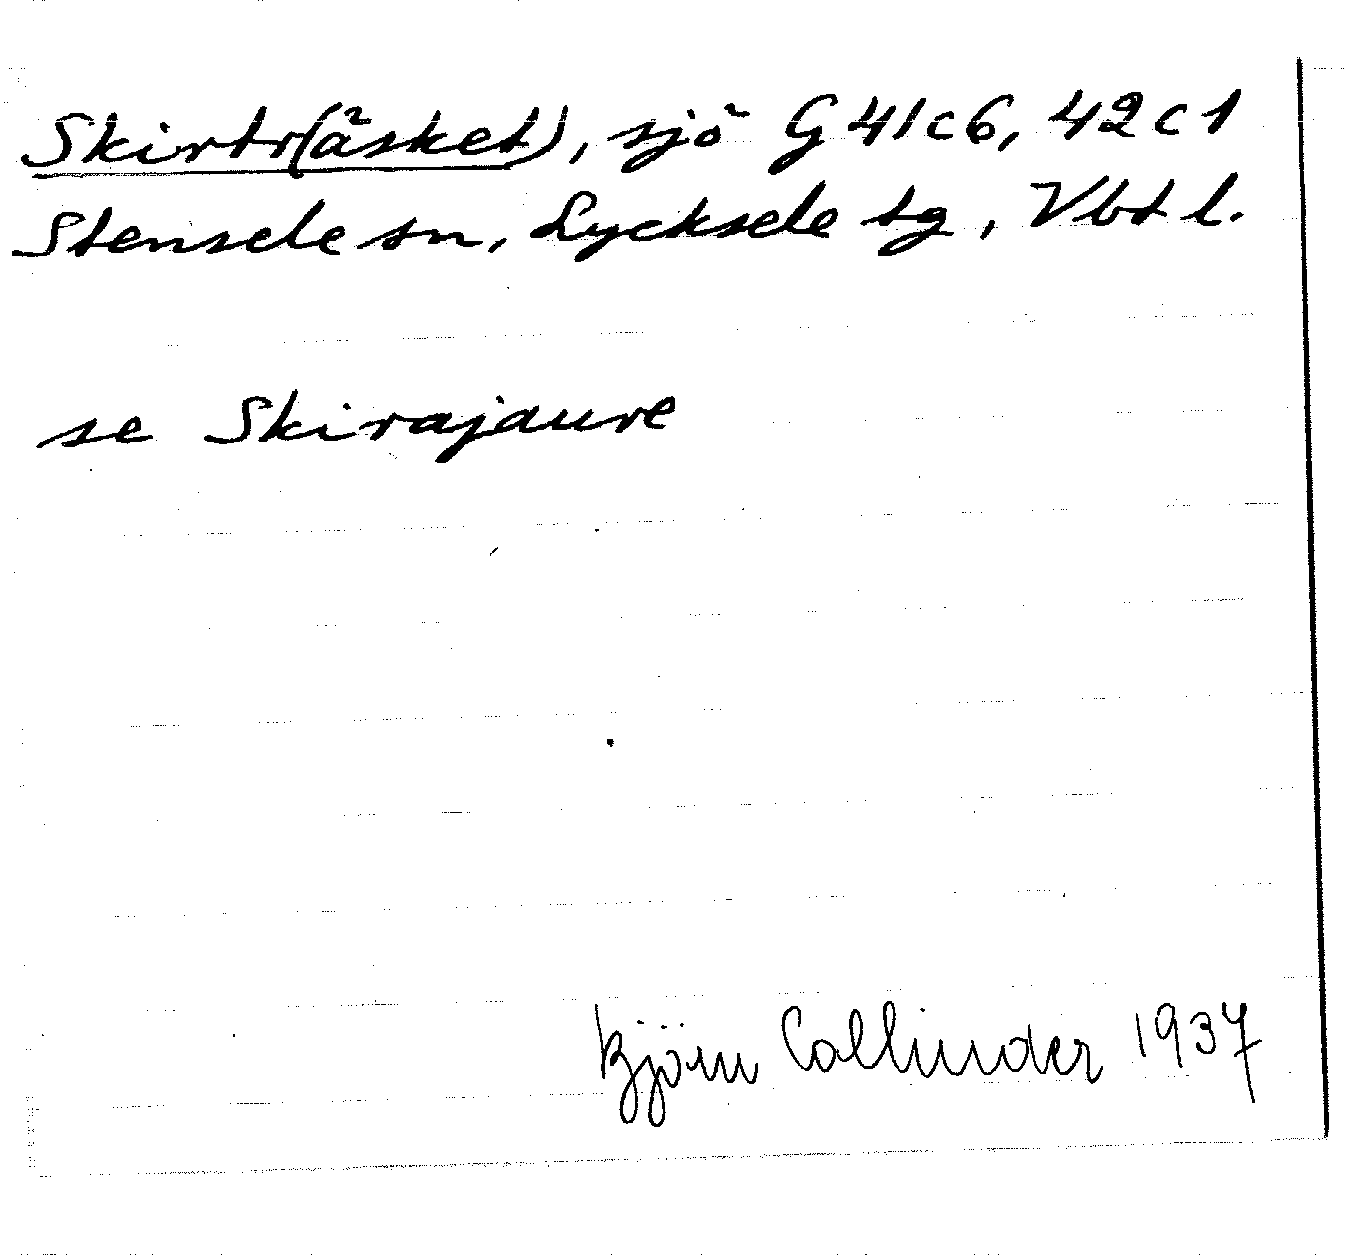 Skirtr(äsket), sjö G 41c6, 42c1
Stensele sn, Lycksele tg, Vbt l.
se Skirajaure
Björn Collinder 1937